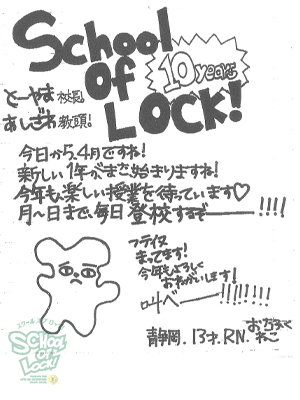 School
of
LOCK!
10 years
とーやま校長!
あしざわ教頭!
今日から、4月ですね!
新しい1年がまた始まりますね!
今年も、楽しい授業を待っています♡
月〜日まで、毎日登校するぞ――!!!!
まってます!
今年もよろしく
おねがいします!
叫べ――!!!!!!!!
静岡.13才.R.N.
ねこ
SCHOOL
OF
LOCK!